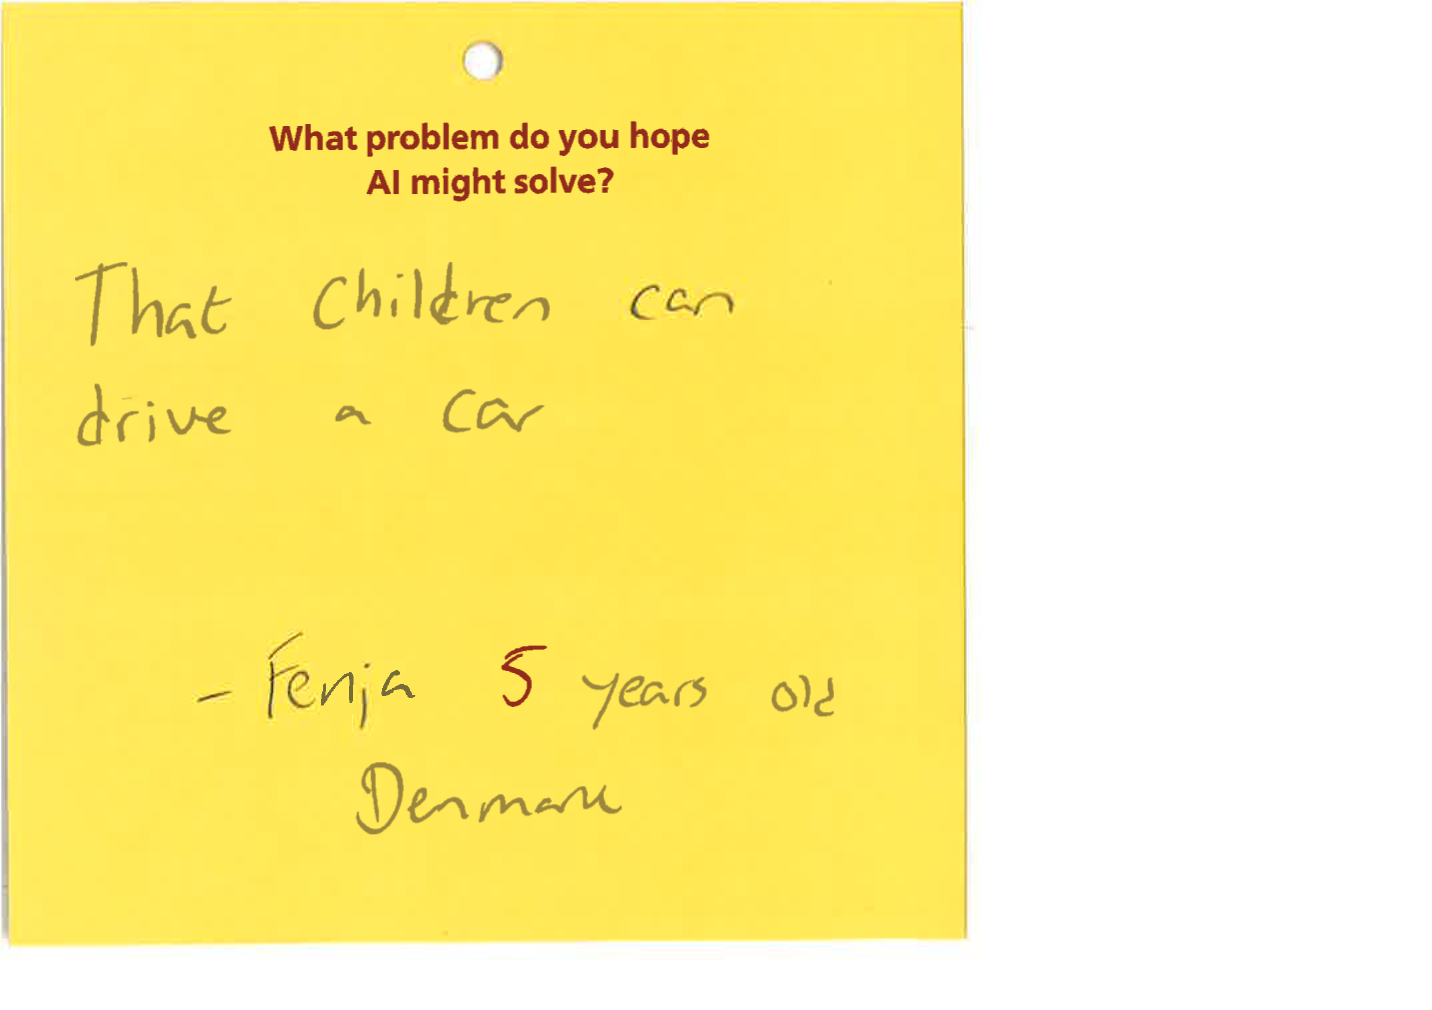 What problem do you hope
AI might solve?
That children can
drive a car
- Fenja 5 years old
Denmark